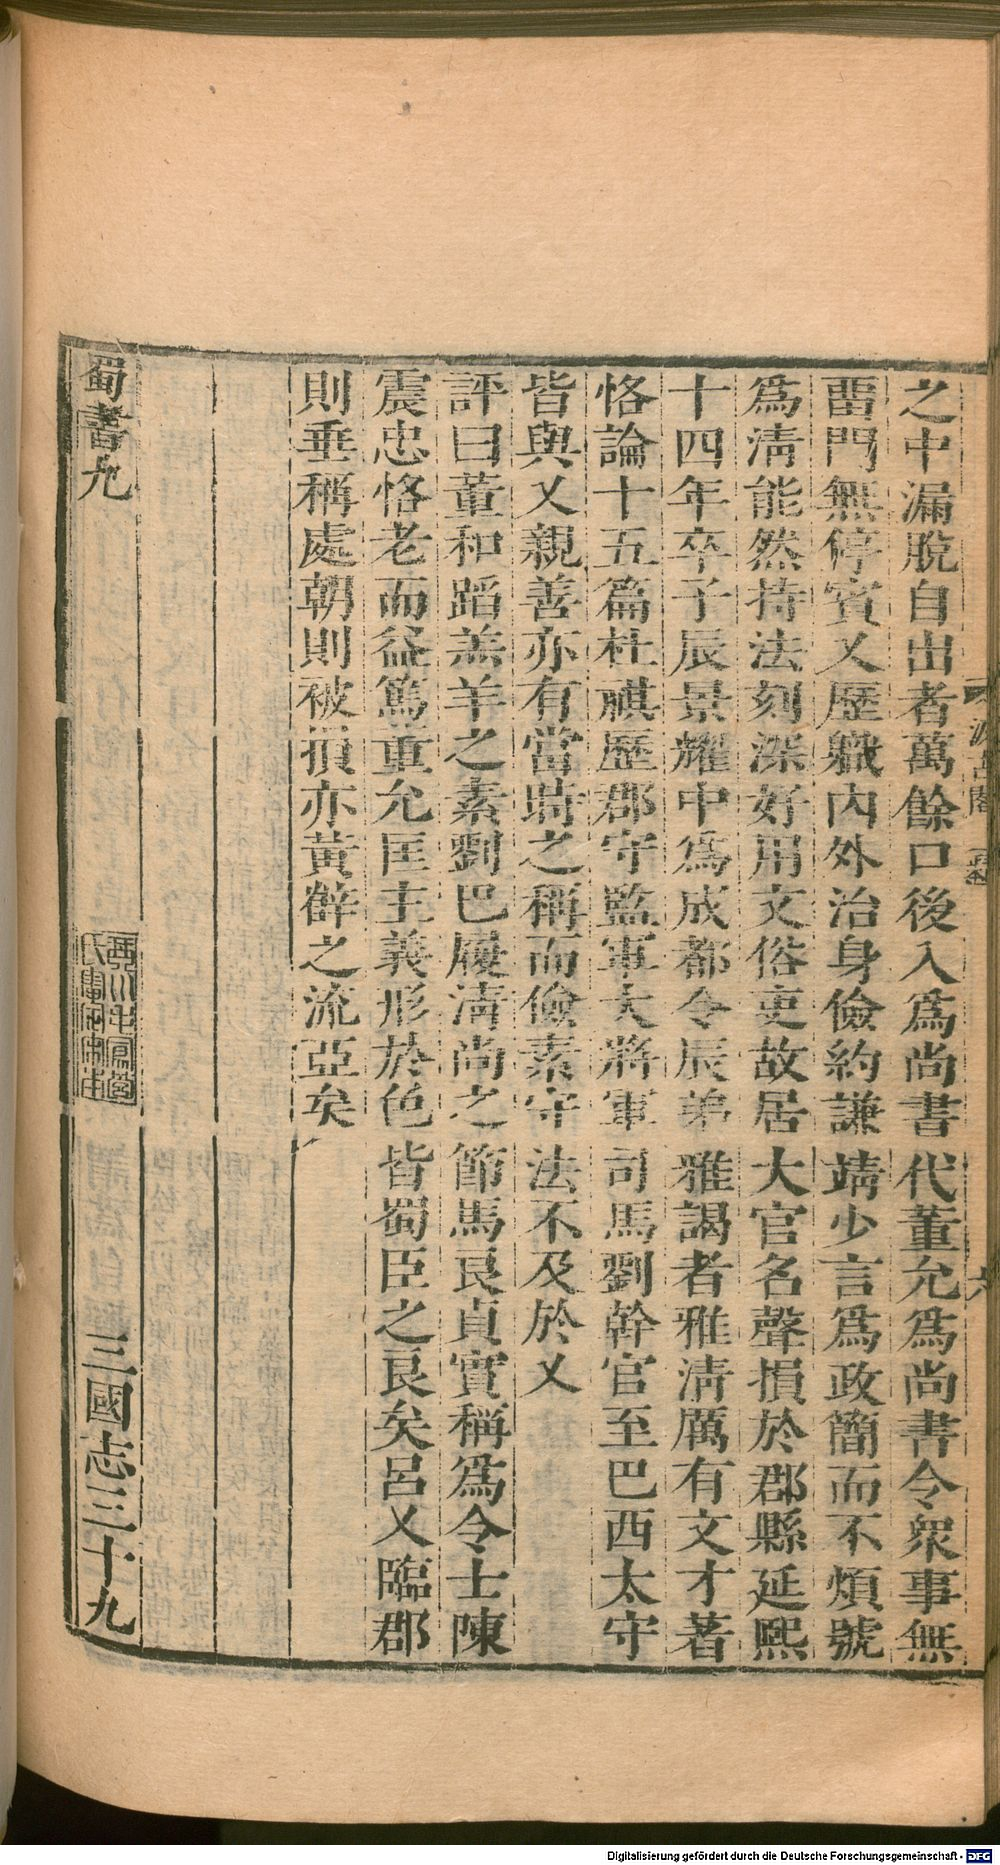 之中漏脫自出者萬餘口後入爲尚書代董允爲尚書令衆事無
畱門無停賓乂歷職內外治身儉約謙靖少言爲政簡而不煩號
爲淸能然持法刻深好用文俗吏故居大官名聲損於郡縣延熙
十四年卒子辰景耀中爲成都令辰弟雅謁者雅淸厲有文才著
恪論十五篇杜祺歷郡守監軍大將軍司馬劉幹官至巴西太守
皆與乂親善亦有當時之稱而儉素守法不及於乂
評曰董和蹈羔羊之素劉巴履淸尚之節馬良貞實稱爲令士陳
震忠恪老而益篤董允匡主義形於色皆蜀臣之良矣呂乂臨郡
則垂稱處朝則被損亦黃薛之流亞矣
蜀書九
三國志三十九
六
Digitalisierung gefördert durch die Deutsche Forschungsgemeinschaft - DFG